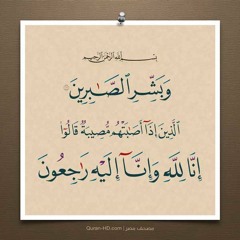 بسم الله الرحمن الرحيم
وَبَشِّرِ ٱلصَّـٰبِرِينَ
ٱلَّذِينَ إِذَآ أَصَـٰبَتْهُم مُّصِيبَةٌ قَالُوٓا۟
إِنَّا لِلَّهِ وَإِنَّآ إِلَيْهِ رَٰجِعُونَ
Quran-HD.com | مصحف مصر